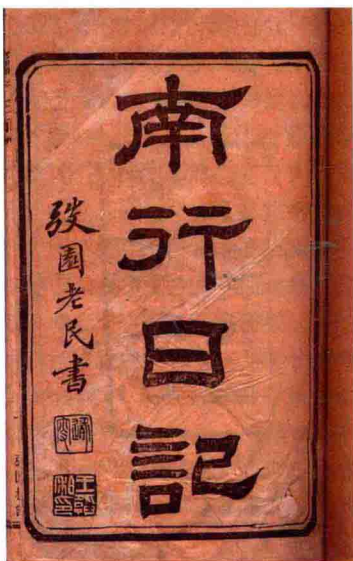 南行日記
弢園老民書